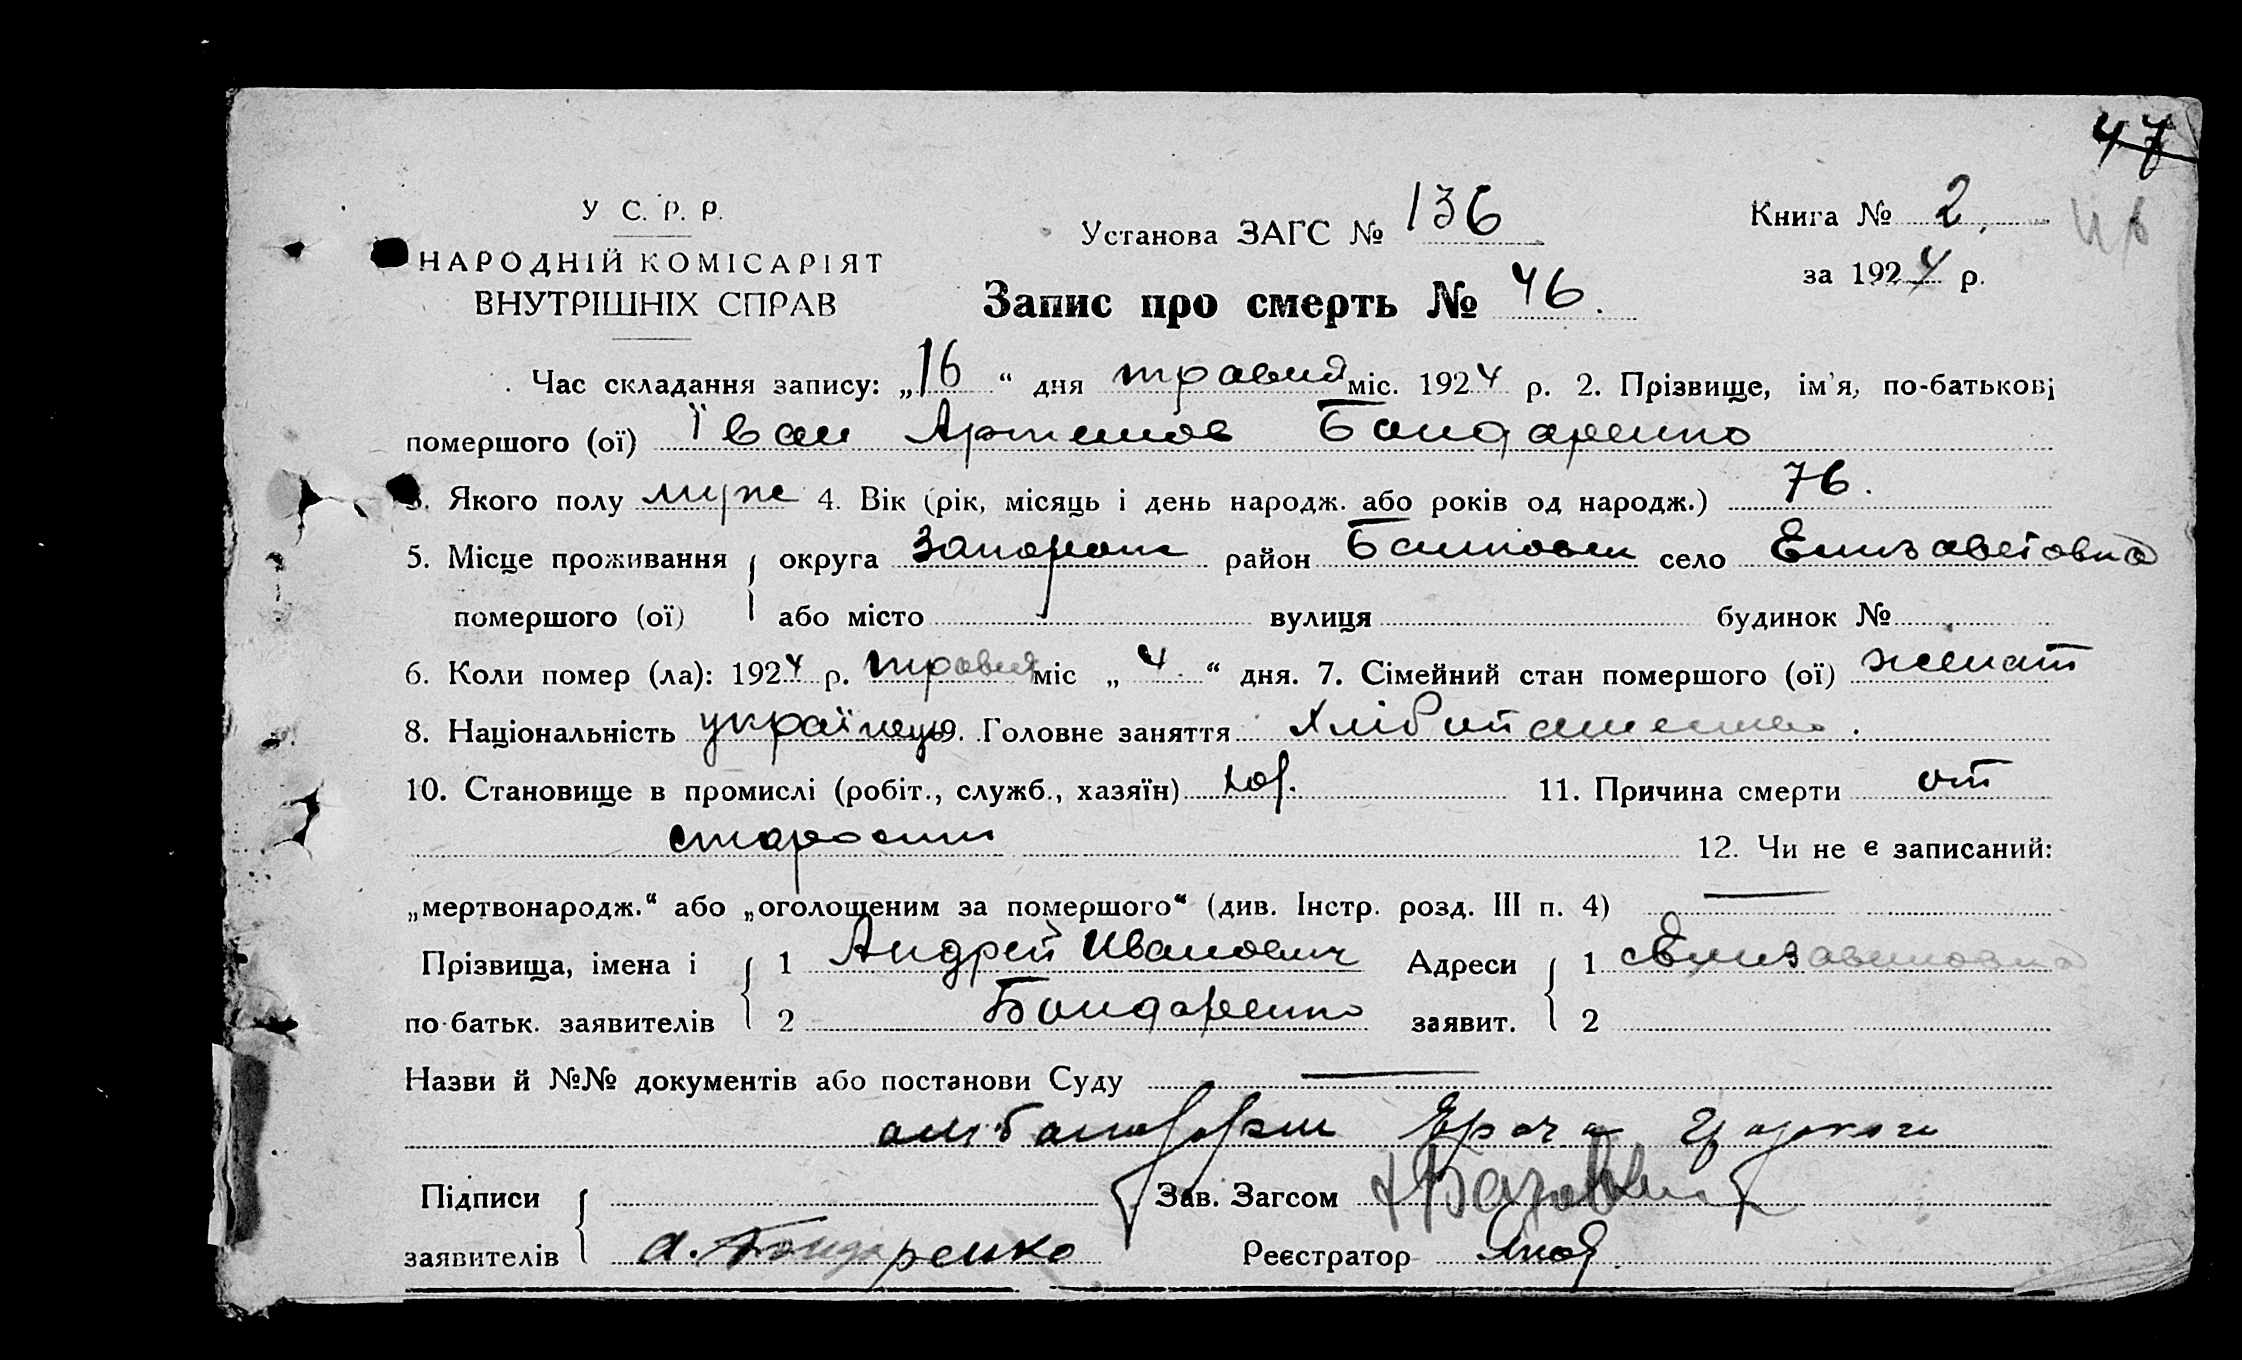 47
46
У С. Р. Р.
НАРОДНІЙ КОМІСАРІЯТ
ВНУТРІШНІХ СПРАВ
Установа ЗАГС № 136
Книга № 2.
за 1924 р.
Запис про смерть № 46.
Час складання запису: „16“ дня травня міс. 1924 р. 2. Прізвище, ім'я, по-батькові
помершого (ої) Їван Артемов Бондаренко
3. Якого полу муж 4. Вік (рік, місяць і день народж. або років од народж.) 76.
5. Місце проживання округа Запорож район Балковск село Елизаветовка
помершого (ої) або місто вулиця будинок №
6. Коли помер (ла): 1924 р. травня міс „4“ дня. 7. Сімейний стан помершого (ої) женат
8. Національність українець 9. Головне заняття Хлібопашество.
10. Становище в промислі (робіт., служб., хазяїн) хоз. 11. Причина смерти от
старости 12. Чи не є записаний:
„мертвонародж.“ або „оголошеним за помершого“ (див. Інстр. розд. III п. 4) —
Прізвища, імена і 1 Андрей Иванович Адреси 1 с Елизаветовка
по-батьк. заявителів 2 Бондаренко заявит. 2
Назви й №№ документів або постанови Суду —
Врача
Підписи Зав. Загсом
заявителів А. Бондаренко Реєстратор